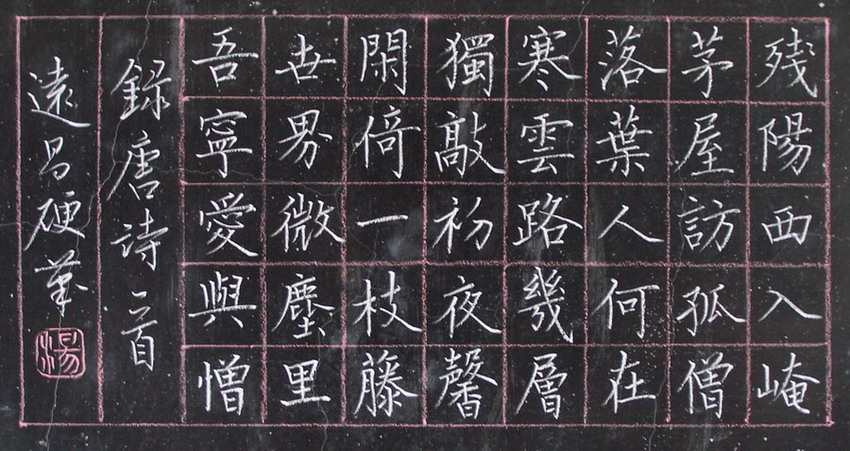 残陽西入崦
茅屋訪孤僧
落葉人何在
寒雲路幾層
獨敲初夜馨
閑倚一枝藤
世界微塵里
吾寧愛與憎
録唐詩一首
遠昌硬筆
湯